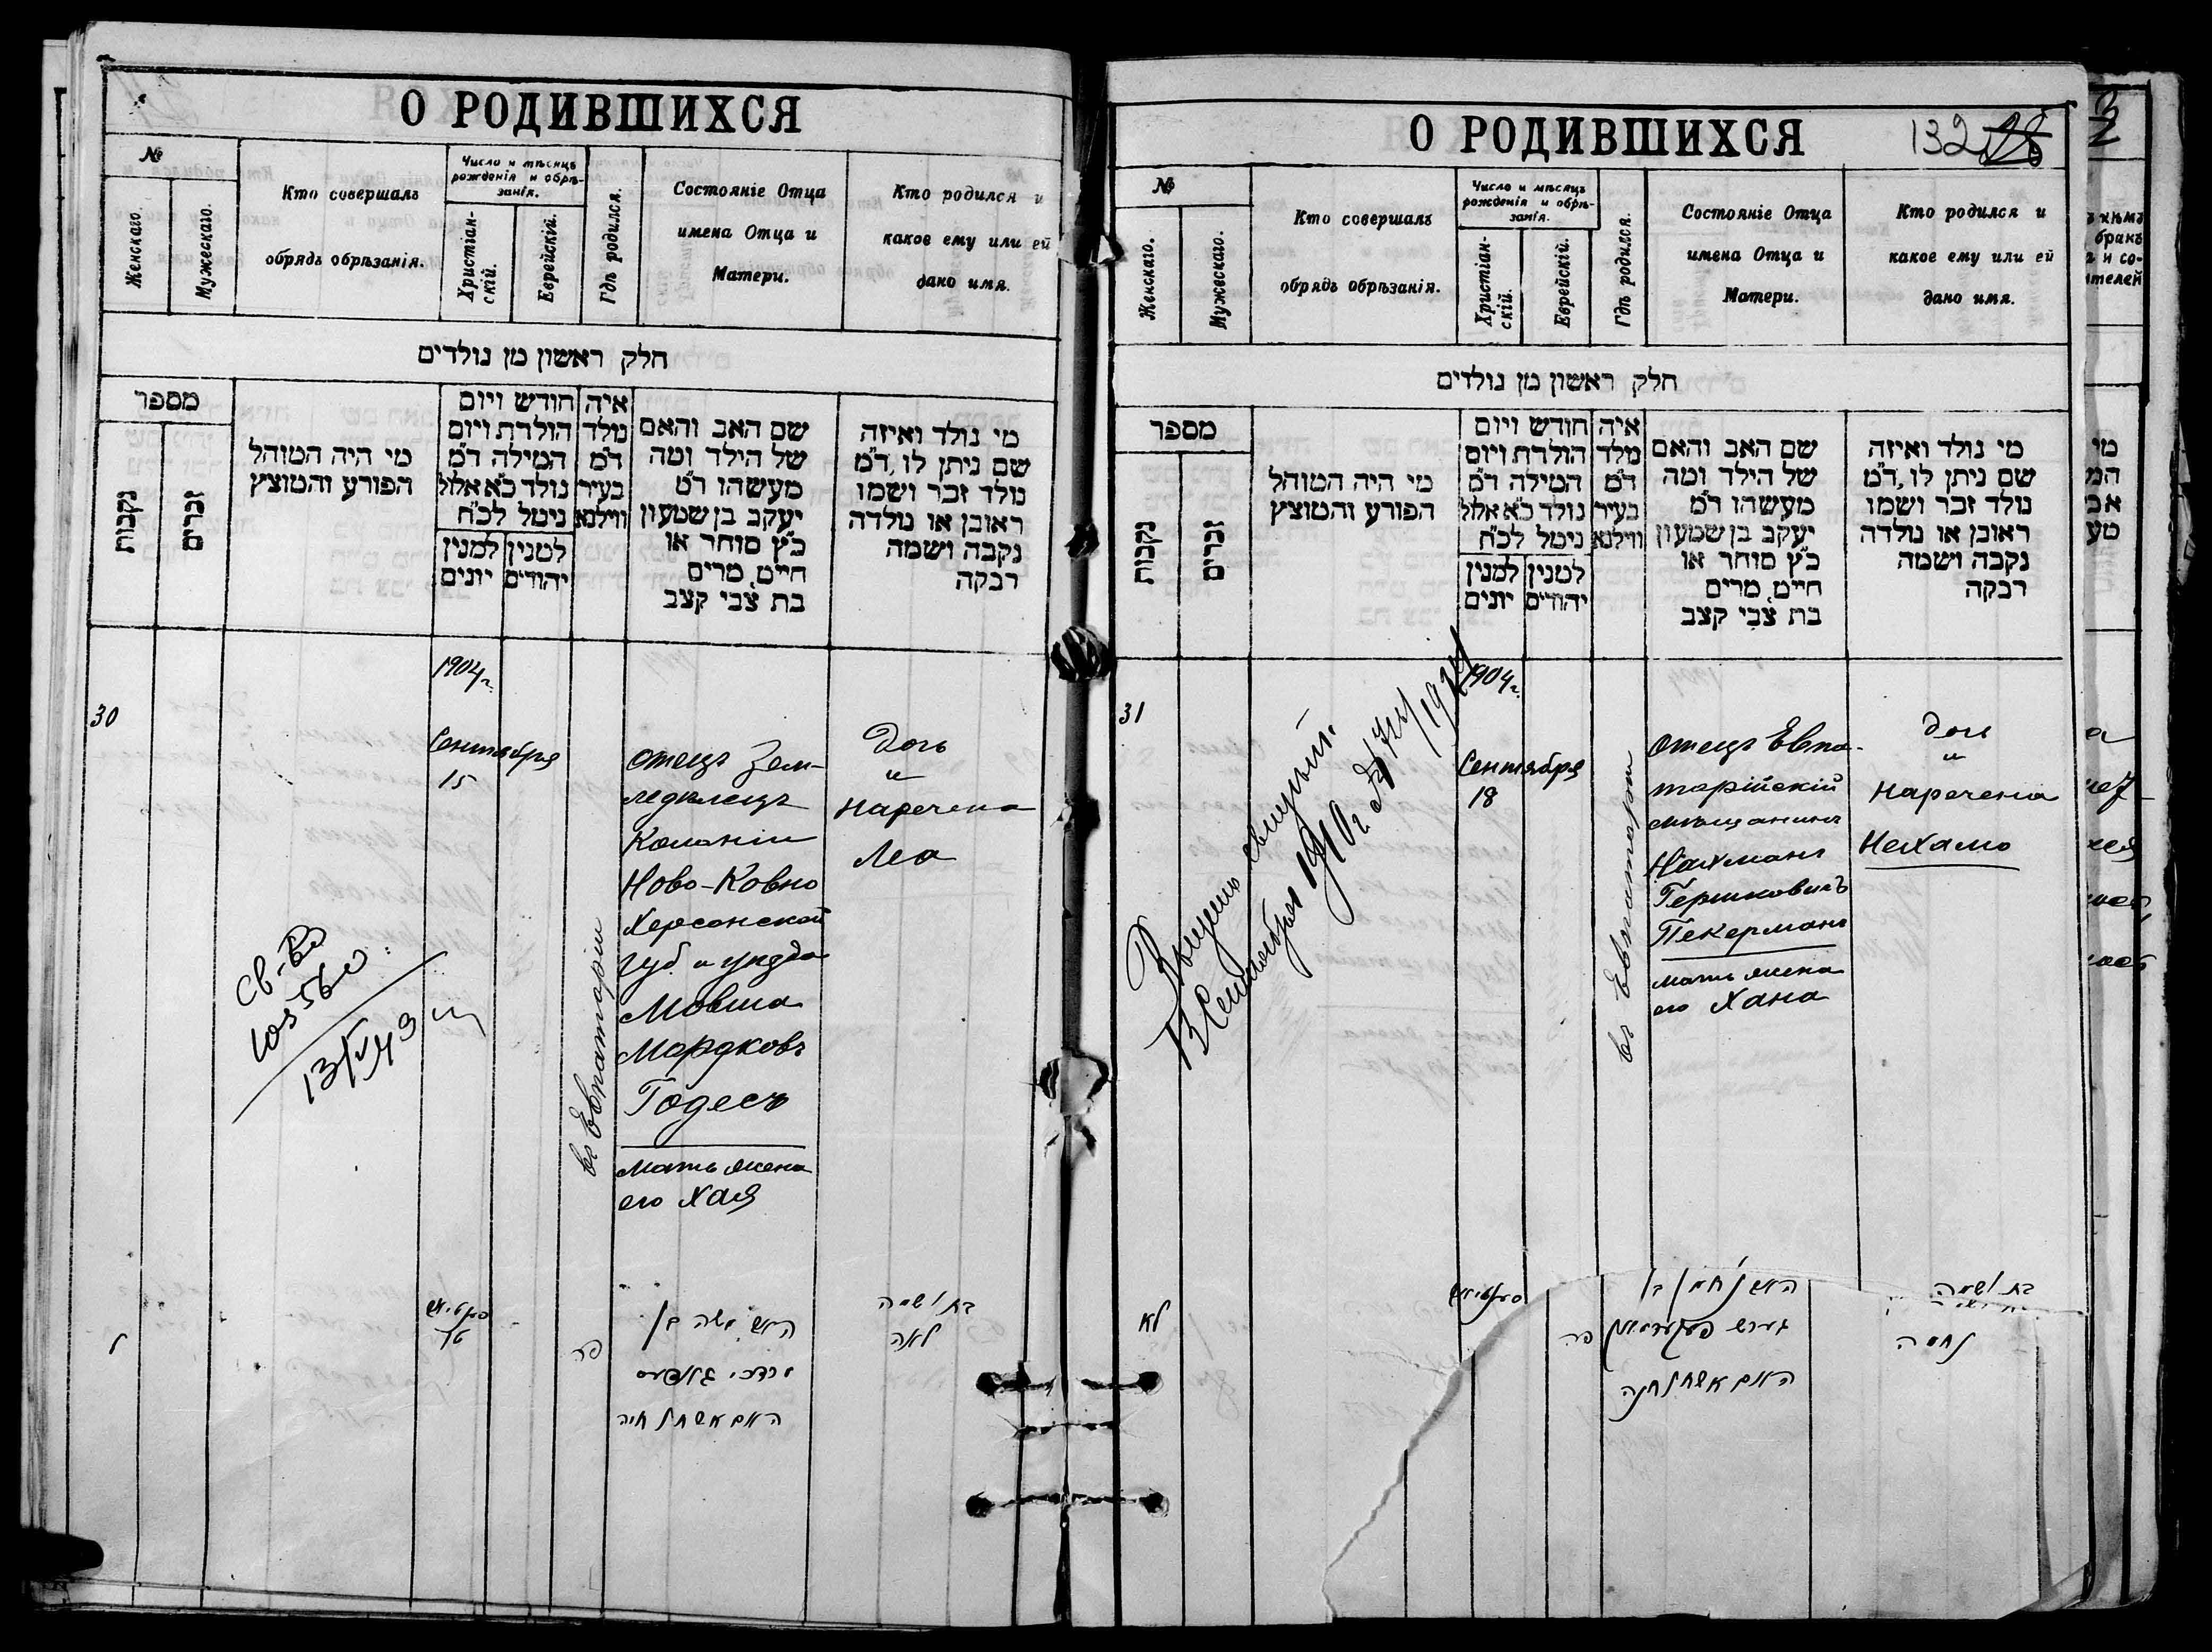 О РОДИВШИХСЯ
№
Женскаго.
Мужескаго.
Кто совершалъ
обрядъ обрѣзанія.
Число и мѣсяцъ
рожденія и обрѣ-
занія.
Христіан-
скій.
Еврейскій.
Гдѣ родился.
Состояніе Отца
имена Отца и
Матери.
Кто родился и
какое ему или ей
дано имя.
חלק ראשון מן נולדים
מספר
נקבות
זכרים
מי היה המוהל
הפורע והמוצץ
חודש ויום
הולדת ויום
המילה ד״מ
נולד כ״א אלול
ניטל לכ״ח
למנין
יונים
למנין
יהודים
איה
נולד
ד״מ
בעיר
ווילנא
שם האב והאם
של הילד ומה
מעשהו ד״מ
יעקב בן שמעון
כ״ץ סוחר או
חייט, מרים
בת צבי קצב
מי נולד ואיזה
שם ניתן לו, ד״מ
נולד זכר ושמו
ראובן או נולדה
נקבה ושמה
רבקה
1904 г.
30
Сентября
15
въ Евпаторіи
отецъ Зем-
ледѣлецъ
Колоніи
Ново-Ковно
Херсонской
губ. и уѣзда
Мовша
Мордковъ
Годесъ
мать жена
его Хая
Дочь
и
наречена
Леа
св-во
ל
האם אשתו חיה
בת ושמה
לאה
О РОДИВШИХСЯ
132
№
Женскаго.
Мужескаго.
Кто совершалъ
обрядъ обрѣзанія.
Число и мѣсяцъ
рожденія и обрѣ-
занія.
Христіан-
скій.
Еврейскій.
Гдѣ родился.
Состояніе Отца
имена Отца и
Матери.
Кто родился и
какое ему или ей
дано имя.
חלק ראשון מן נולדים
מספר
נקבות
זכרים
מי היה המוהל
הפורע והמוצץ
חודש ויום
הולדת ויום
המילה ד״מ
נולד כ״א אלול
ניטל לכ״ח
למנין
יונים
למנין
יהודים
איה
נולד
ד״מ
בעיר
ווילנא
שם האב והאם
של הילד ומה
מעשהו ד״מ
יעקב בן שמעון
כ״ץ סוחר או
חייט, מרים
בת צבי קצב
מי נולד ואיזה
שם ניתן לו, ד״מ
נולד זכר ושמו
ראובן או נולדה
נקבה ושמה
רבקה
1904 г.
31
Сентября
18
въ Евпаторіи
отецъ Евпа-
торійскій
мѣщанинъ
Нахманъ
Гершковичъ
Пекерманъ
мать жена
его Хана
дочь
и
наречена
Нехамо
Сентября 1910 г.
לא
האם אשתו חנה
בת ושמה
נחמה